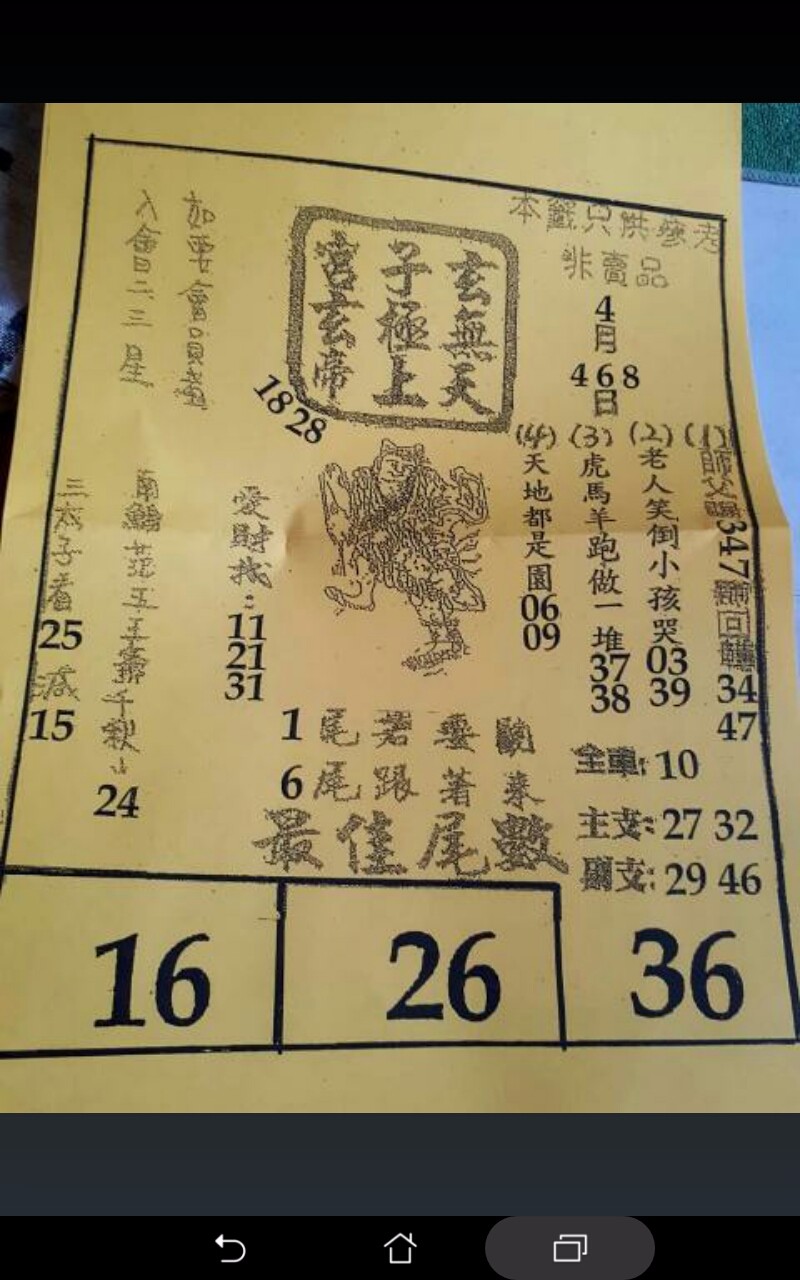 本籤只供參考
非賣品
4
月
4 6 8
日
玄無天
子極上
宮玄帝
18 28
如要會員
入會二三星
(1)
347
34
47
(2)
老人笑倒小孩哭
03
39
(3)
虎馬羊跑做一堆
37
38
(4)
天地都是園
06
09
愛財找:
11
21
31
南鯤
五王
千秋
24
三太子看
25
減
15
1尾若要
6尾跟著來
最佳尾數
全車:10
主支:27 32
支:29 46
16
26
36